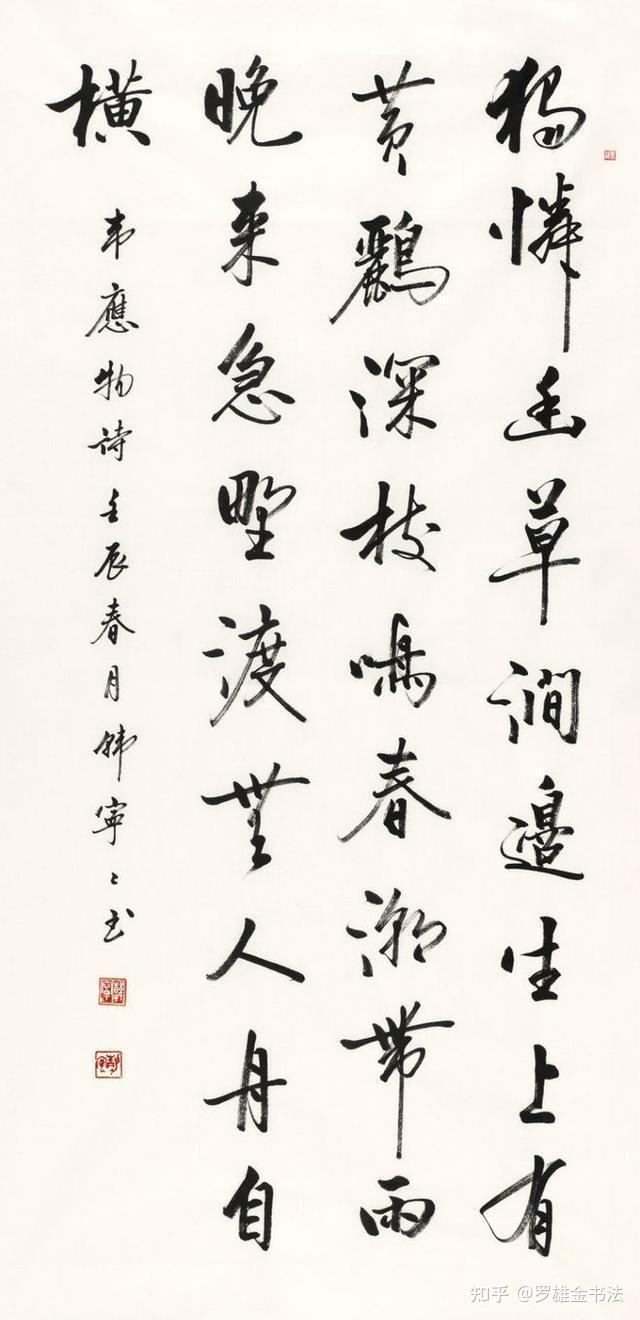 獨憐幽草澗邊生上有
黄鸝深枝鳴春潮帶雨
晚来急野渡無人舟自
橫
韦應物詩壬辰春月韩寧〻书
知乎 @罗雄金书法